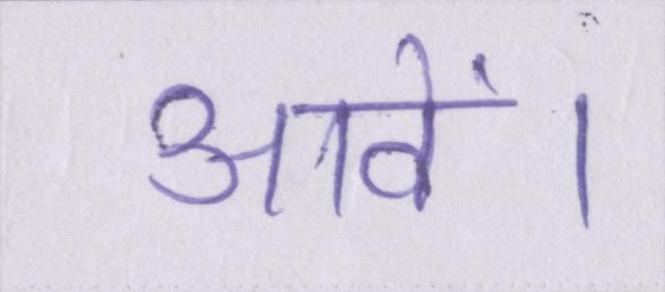 आवें।